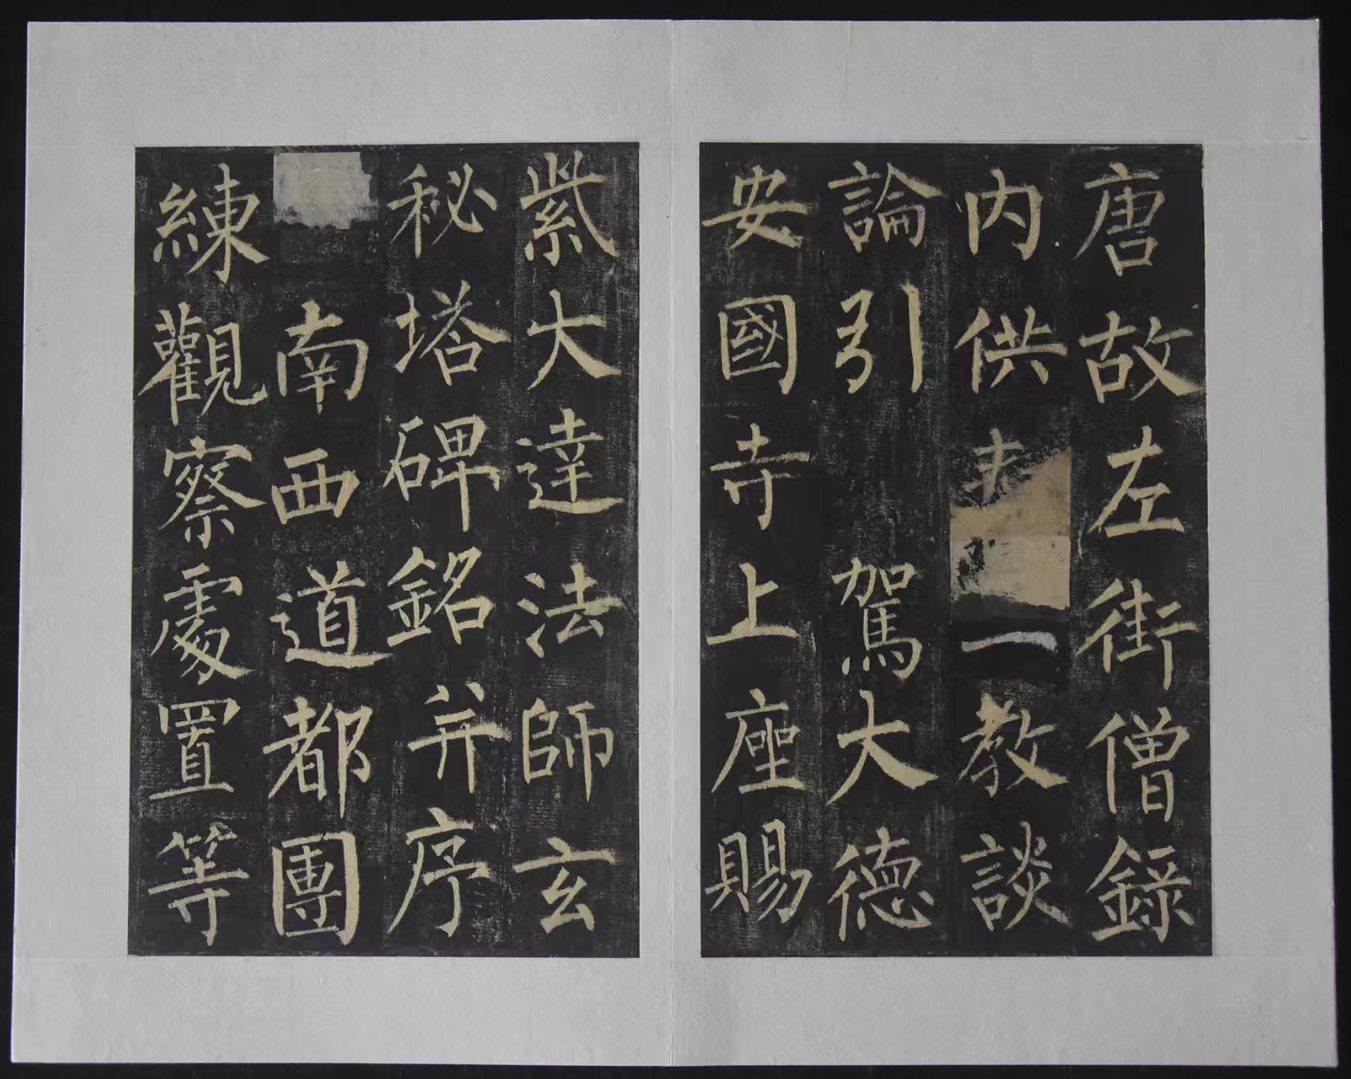 唐故左街僧錄
內供一教談
論引駕大德
安國寺上座賜
紫大達法師玄
秘塔碑銘并序
南西道都團
練觀察處置等